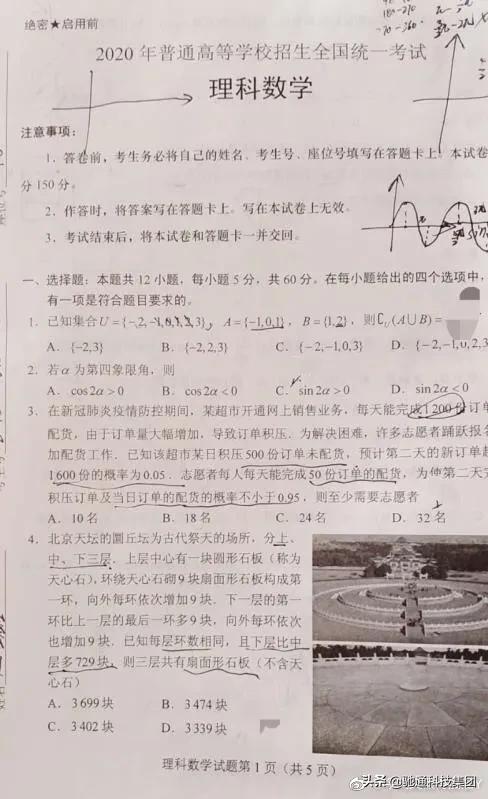 绝密★启用前
2020 年普通高等学校招生全国统一考试
理科数学
注意事项：
1．答卷前，考生务必将自己的姓名、考生号、座位号填写在答题卡上。本试卷
分 150 分。
2．作答时，将答案写在答题卡上。写在本试卷上无效。
3．考试结束后，将本试卷和答题卡一并交回。
一、选择题：本题共 12 小题，每小题 5 分，共 60 分。在每小题给出的四个选项中，
有一项是符合题目要求的。
1．已知集合U={-2,-1,0,1,2,3}，A={-1,0,1}，B={1,2}，则∁U(A∪B)=
A．{-2,3} B．{-2,2,3} C．{-2,-1,0,3} D．{-2,-1,0,2,3
2．若α为第四象限角，则
A．cos2α>0 B．cos2α<0 C．sin2α>0 D．sin2α<0
3．在新冠肺炎疫情防控期间，某超市开通网上销售业务，每天能完成1200份订单
配货，由于订单量大幅增加，导致订单积压．为解决困难，许多志愿者踊跃报名
加配货工作．已知该超市某日积压500份订单未配货，预计第二天的新订单超
1600份的概率为0.05．志愿者每人每天能完成50份订单的配货，为使第二天完
积压订单及当日订单的配货的概率不小于0.95，则至少需要志愿者
A．10名 B．18名 C．24名 D．32名
4．北京天坛的圜丘坛为古代祭天的场所，分上、
中、下三层．上层中心有一块圆形石板（称为
天心石），环绕天心石砌9块扇面形石板构成第
一环，向外每环依次增加9块．下一层的第一
环比上一层的最后一环多9块，向外每环依次
也增加9块．已知每层环数相同，且下层比中
层多729块，则三层共有扇面形石板（不含天
心石）
A．3699块 B．3474块
C．3402块 D．3339块
理科数学试题第 1 页（共 5 页）
头条 @驰通科技集团